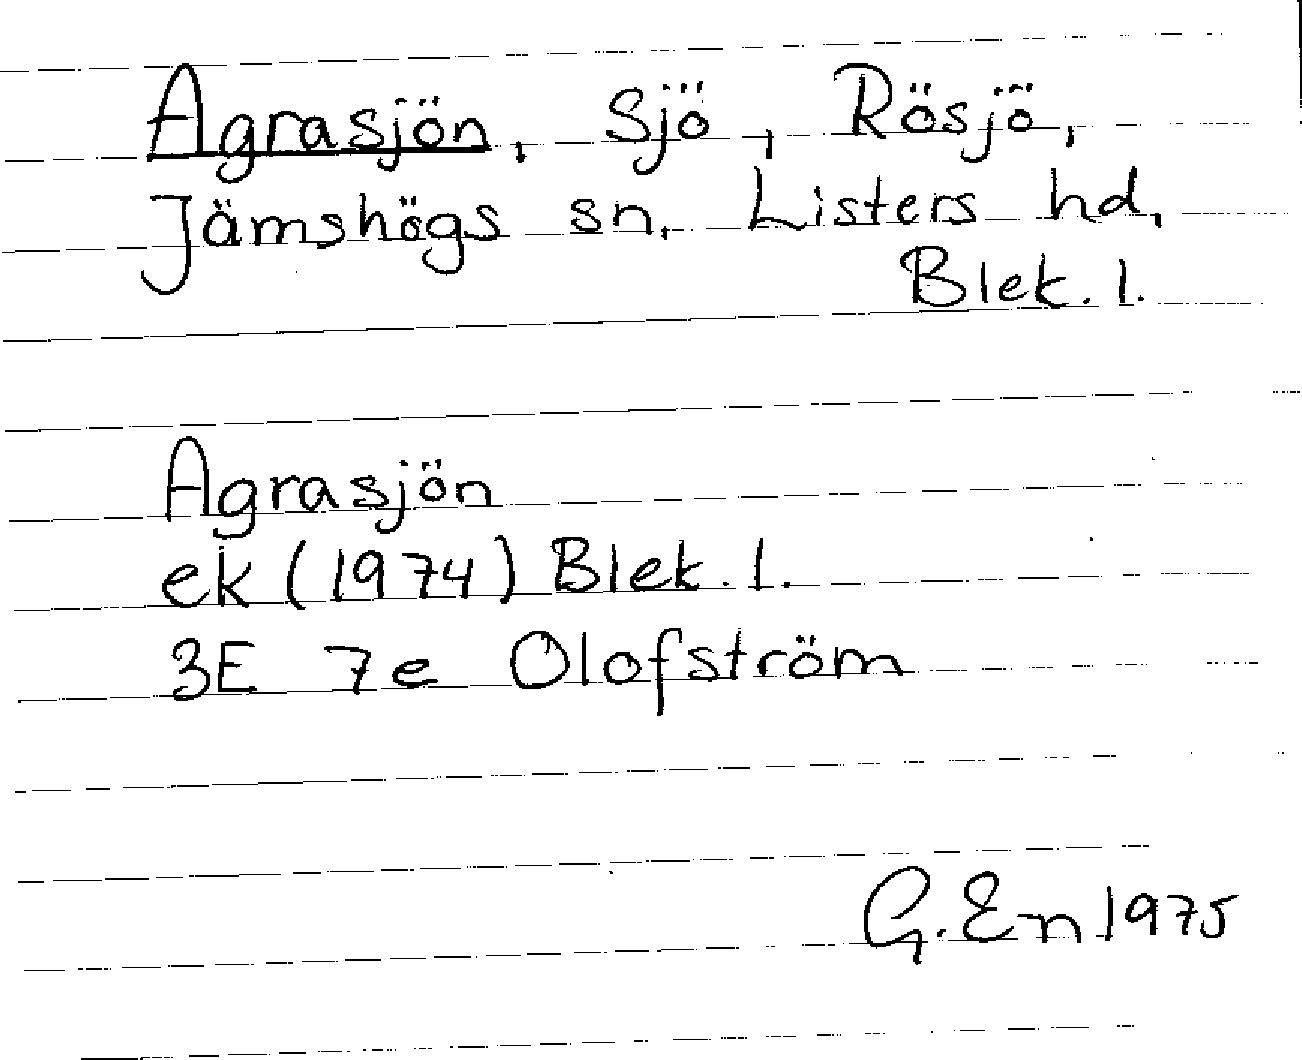 Agrasjön, Sjö, Rösjö,
Jämshögs sn, Listers hd,
Blek. l.
Agrasjön
ek (1974) Blek. l.
3E 7e Olofström
G. En 1975